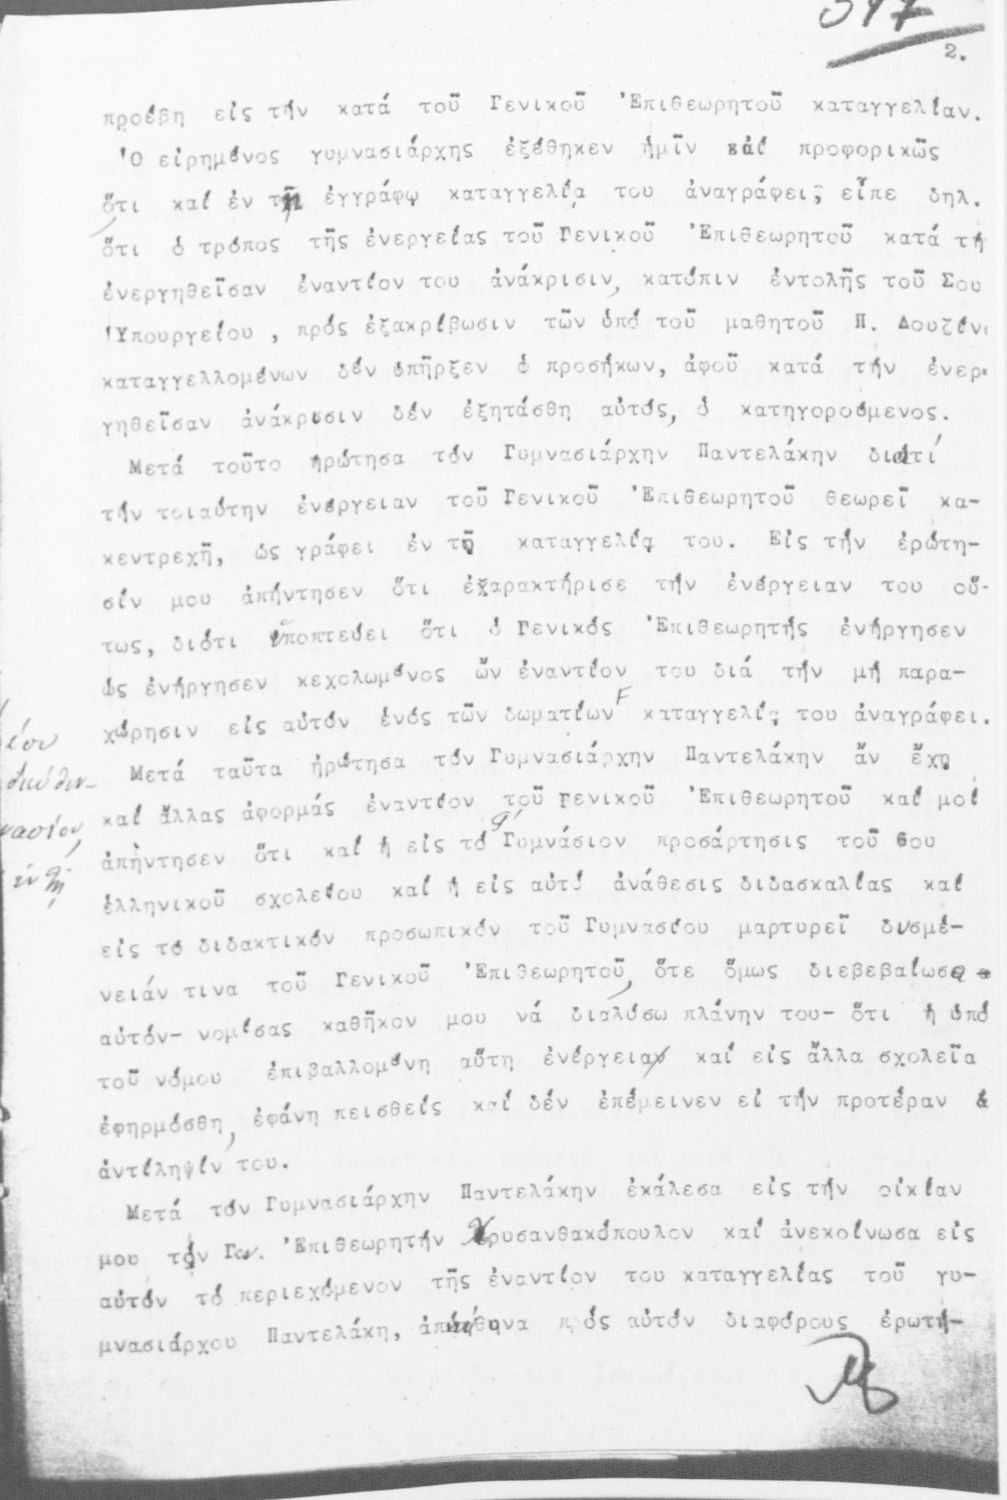 2.
προέβη εἰς τήν κατά τοῦ Γενικοῦ Ἐπιθεωρητοῦ καταγγελίαν.
Ὁ εἰρημένος γυμνασιάρχης ἐξέθηκεν ἡμῖν καί προφορικῶς
ὅτι καί ἐν τῇ ἐγγράφῳ καταγγελίᾳ του ἀναγράφει, εἶπε δηλ.
ὅτι ὁ τρόπος τῆς ἐνεργείας τοῦ Γενικοῦ Ἐπιθεωρητοῦ κατά τή
ἐνεργηθεῖσαν ἐναντίον του ἀνάκρισιν, κατόπιν ἐντολῆς τοῦ Σου
Ὑπουργείου, πρός ἐξακρίβωσιν τῶν ὑπό τοῦ μαθητοῦ Π. Δουζίν
καταγγελλομένων δέν ὑπῆρξεν ὁ προσήκων, ἀφοῦ κατά τήν ἐνερ-
γηθεῖσαν ἀνάκρισιν δέν ἐξητάσθη αὐτός, ὁ κατηγορούμενος.
Μετά τοῦτο ἠρώτησα τόν Γυμνασιάρχην Παντελάκην διατί
τήν τοιαύτην ἐνέργειαν τοῦ Γενικοῦ Ἐπιθεωρητοῦ θεωρεῖ κα-
κεντρεχῆ, ὡς γράφει ἐν τῇ καταγγελίᾳ του. Εἰς τήν ἐρώτη-
σίν μου ἀπήντησεν ὅτι ἐχαρακτήρισε τήν ἐνέργειαν του οὕ-
τως, διότι ὑποπτεύει ὅτι ὁ Γενικός Ἐπιθεωρητής ἐνήργησεν
ὡς ἐνήργησεν κεχολωμένος ὤν ἐναντίον του διά τήν μή παρα-
χώρησιν εἰς αὐτόν ἑνός τῶν δωματίων F καταγγελίᾳ του ἀναγράφει.
Μετά ταῦτα ἠρώτησα τόν Γυμνασιάρχην Παντελάκην ἄν ἔχῃ
καί ἄλλας ἀφορμάς ἐναντίον τοῦ Γενικοῦ Ἐπιθεωρητοῦ καί μοί
ἀπήντησεν ὅτι καί ἡ εἰς τό Γ΄ Γυμνάσιον προσάρτησις τοῦ 6ου
ἑλληνικοῦ σχολείου καί ἡ εἰς αὐτό ἀνάθεσις διδασκαλίας καί
εἰς τό διδακτικόν προσωπικόν τοῦ Γυμνασίου μαρτυρεῖ δυσμέ-
νειάν τινα τοῦ Γενικοῦ Ἐπιθεωρητοῦ, ὅτε ὅμως διεβεβαίωσα
αὐτόν- νομίσας καθῆκον μου νά διαλύσω πλάνην του- ὅτι ἡ ὑπό
τοῦ νόμου ἐπιβαλλομένη αὕτη ἐνέργεια καί εἰς ἄλλα σχολεῖα
ἐφηρμόσθη, ἐφάνη πεισθείς καί δέν ἐπέμεινεν εἰ τήν προτέραν
ἀντίληψίν του.
Μετά τόν Γυμνασιάρχην Παντελάκην ἐκάλεσα εἰς τήν οἰκίαν
μου τόν Γεν. Ἐπιθεωρητήν Χρυσανθακόπουλον καί ἀνεκοίνωσα εἰς
αὐτόν τό περιεχόμενον τῆς ἐναντίον του καταγγελίας τοῦ γυ-
μνασιάρχου Παντελάκη, ἀπηύθυνα πρός αὐτόν διαφόρους ἐρωτή-